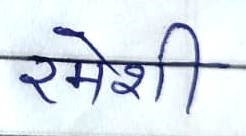 रमेशी